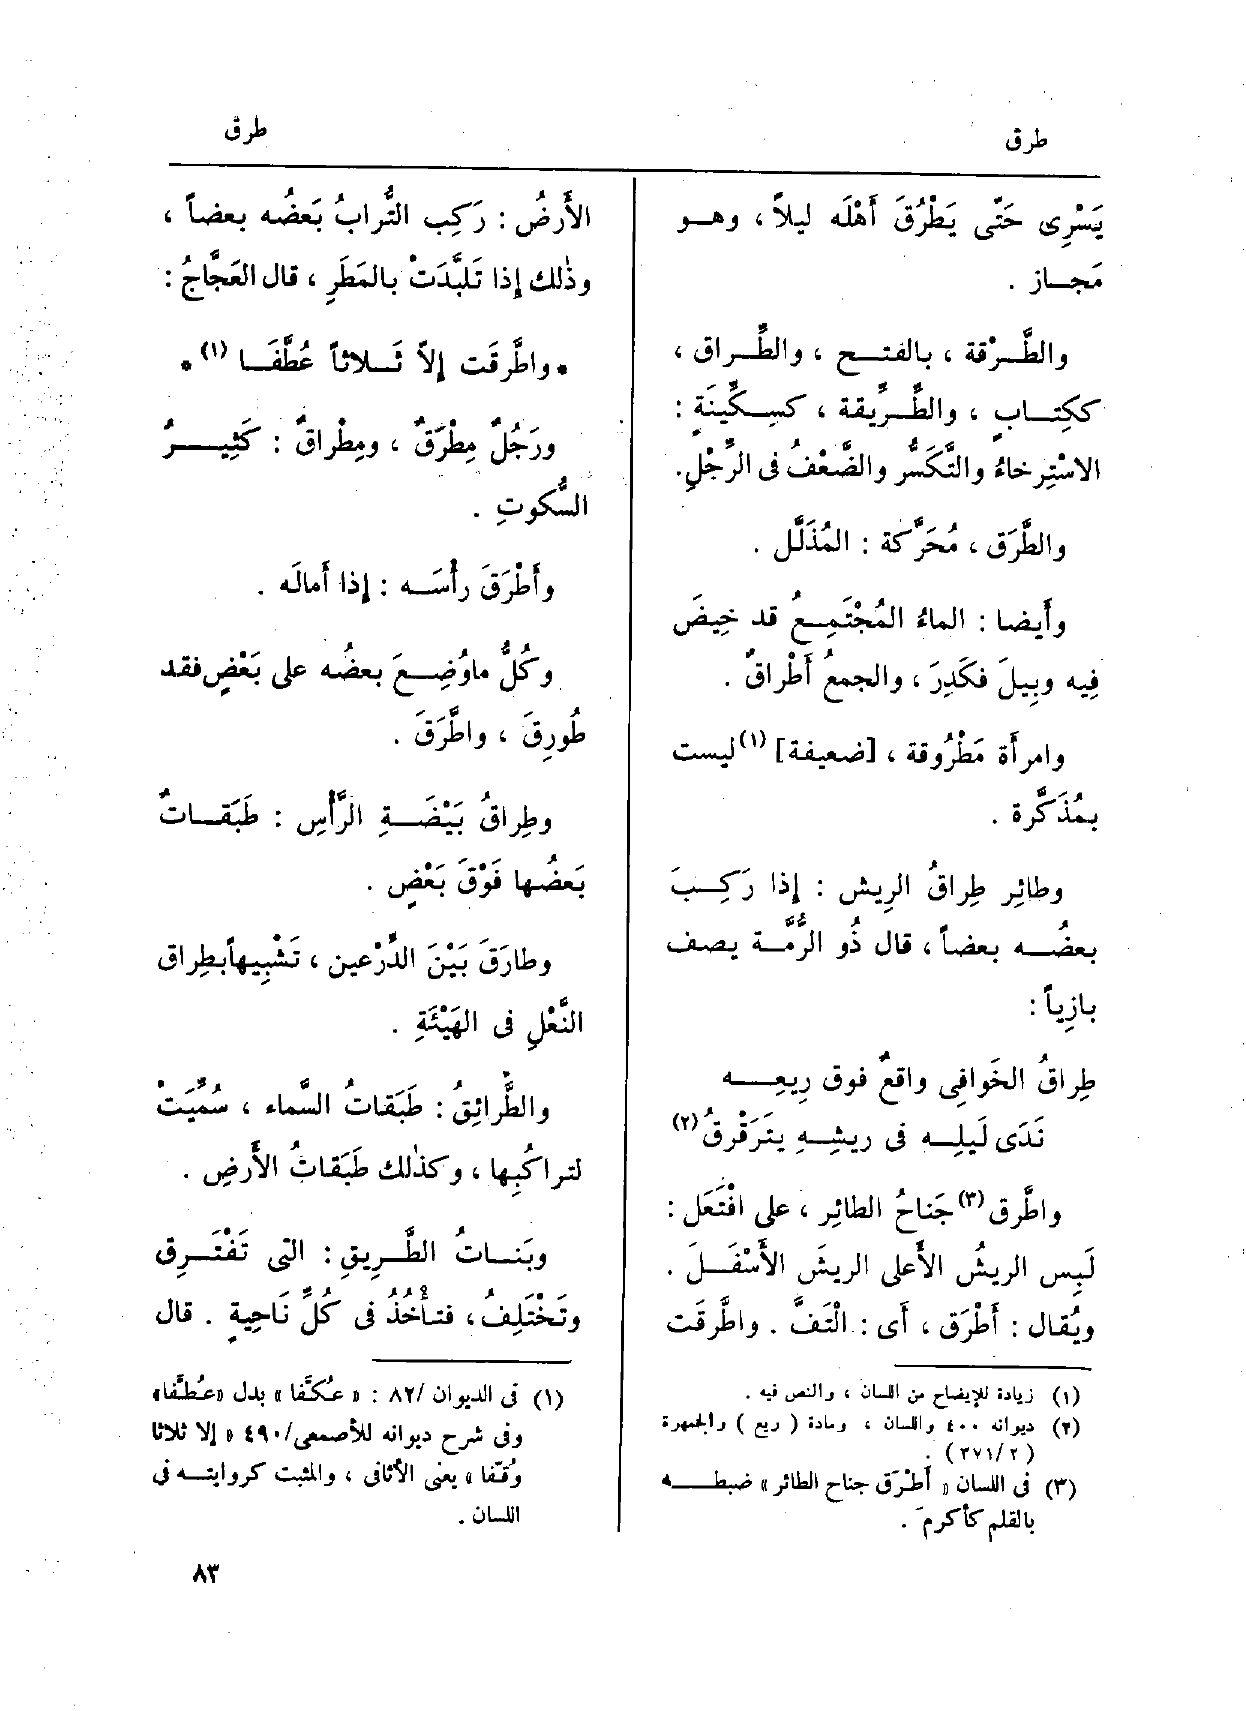 طرق
طرق
يَسْرِى حَتَّى يَطْرُقَ أَهْلَه ليلاً ، وهــو
مَجــاز .
والطَّــرْقة ، بالفتــح ، والطِّــراق ،
ككِتــابٍ ، والطِّــرِّيقة ، كسِــكِّينَةٍ :
الاسْتِرخاءُ والتَّكَسُّر والضَّعْفُ فى الرِّجْلِ.
والطَّرَق ، مُحَرَّكة : المُذَلَّل .
وأَيضا : الماءُ المُجْتَمِــعُ قد خِيضَ
فِيه وبِيلَ فكَدِرَ ، والجمعُ أَطْراقٌ .
وامرأَة مَطْرُوقة ، [ضعيفة] (١) ليست
بمُذَكَّرة .
وطائِر طِراقُ الرِيش : إِذا رَكِــبَ
بعضُــه بعضاً ، قال ذُو الرُّمَّــة يصف
بازِياً :
طِراقُ الخَوافِى واقعٌ فوق رِيعِــه
نَدَى لَيلِــه فى رِيشِــهِ يتَرَقْرقُ (٢)
واطَّرق (٣) جَناحُ الطائِر ، على افْتَعَل :
لَبِس الرِيشُ الأَعلى الرِيشَ الأَسْفَــلَ .
ويُقال : أَطْرَق ، أَى : الْتَفَّ . واطَّرقَت
(١) زيادة للإيضاح من اللسان ، والنص فيه .
(٢) ديوانه ٤٠٠ واللسان ، ومادة ( ريع ) والجمهرة
( ٣٧١/٢ ) .
(٣) فى اللسان « أَطْرَق جناح الطائر » ضبطــه
بالقلم كأكرمَ .
الأَرضُ : رَكِب التُّرابُ بَعضُه بعضاً ،
وذٰلك إِذا تَلَبَّدَتْ بالمَطَرِ ، قال العَجَّاجُ :
* واطَّرقَت إِلاّ ثَــلاثاً عُطَّفَــا (١) *
ورَجُلٌ مِطْرَقٌ ، ومِطْراقٌ : كَثِيــرُ
السُّكوتِ .
وأَطْرَقَ رأْسَــه : إِذا أَمالَه .
وكُلُّ ماوُضِــعَ بعضُه على بَعْضٍ فقد
طُورِقَ ، واطَّرَقَ .
وطِراقُ بَيْضَــةِ الرَّأْسِ : طَبَقــاتٌ
بَعضُها فَوْقَ بَعْضٍ .
وطارَقَ بَيْنَ الدِّرْعين ، تَشْبِيهاً بطِراق
النَّعْلِ فى الهَيْئَةِ .
والطَّرائِقُ : طَبَقاتُ السَّماء ، سُمِّيَتْ
لتراكُبِها ، وكذٰلك طَبَقاتُ الأَرضِ .
وبَنــاتُ الطَّــرِيقِ : التى تَفْتَــرِق
وتَخْتَلِفُ ، فتأْخُذُ فى كُلِّ ناحِيةٍ . قال
(١) فى الديوان /٨٢ : « عُكَّفا » بدل «عُطَّفا»
وفى شرح ديوانه للأصمعى/٤٩٠ « إلا ثلاثا
وُقَّفا » يعنى الأثافى ، والمثبت كروايتــه فى
اللسان .
٨٣